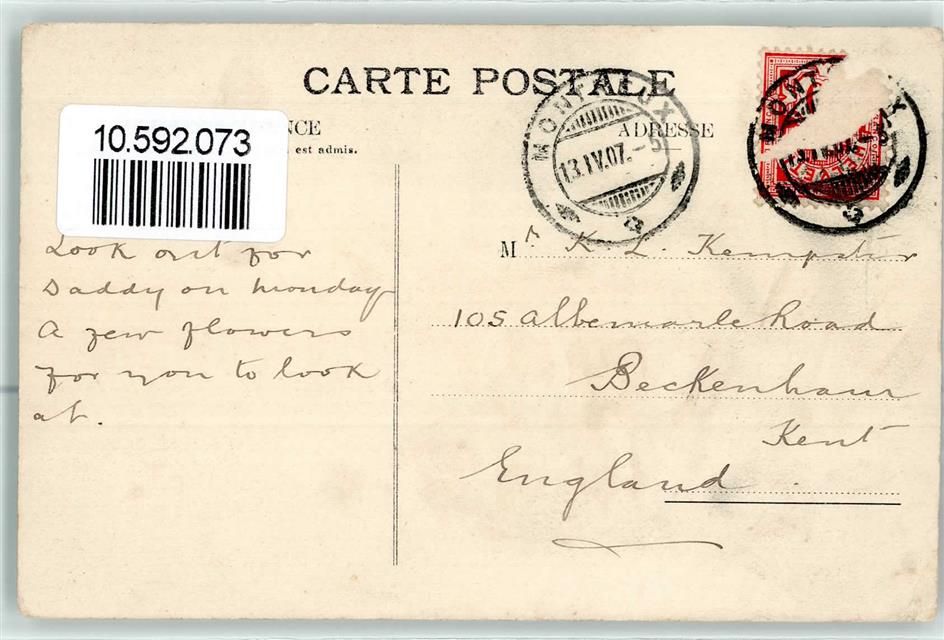 CARTE POSTALE
10.592.073
NCE
est admis.
ADRESSE
MONTREUX
13.IV.07.-5
MONT
X
13.IV.07.
Look out for
Daddy on monday
A few flowers
for you to look
at.
Mr K L Kempster
105 Albemarle Road
Beckenham
Kent
England